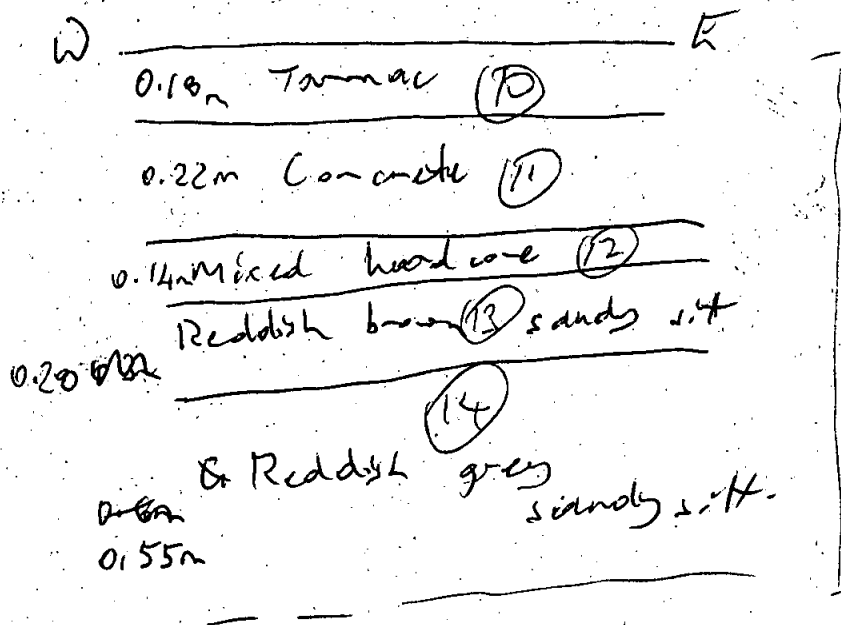 W E
0.18m Tarmac 10
0.22m Concrete 11
0.14m Mixed hardcore 12
Reddish brown 13 sandy silt
0.20
14
& Reddish grey
sandy silt.
0.55m